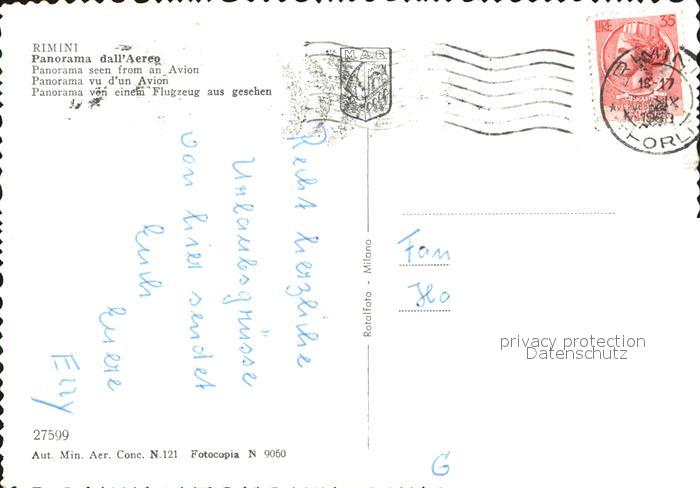 RIMINI
Panorama dall'Aereo
Panorama seen from an Avion
Panorama vu d'un Avion
Panorama von einem Flugzeug aus gesehen
M.A.B.
LIRE 35
16-17
FORLI
Recht herzliche
Urlaubsgrüsse
von hier sendet
Euch
Euere
Elly
Rotalfoto - Milano
Fam
Ha
privacy protection
Datenschutz
27599
Aut. Min. Aer. Conc. N.121 Fotocopia N 9060
G